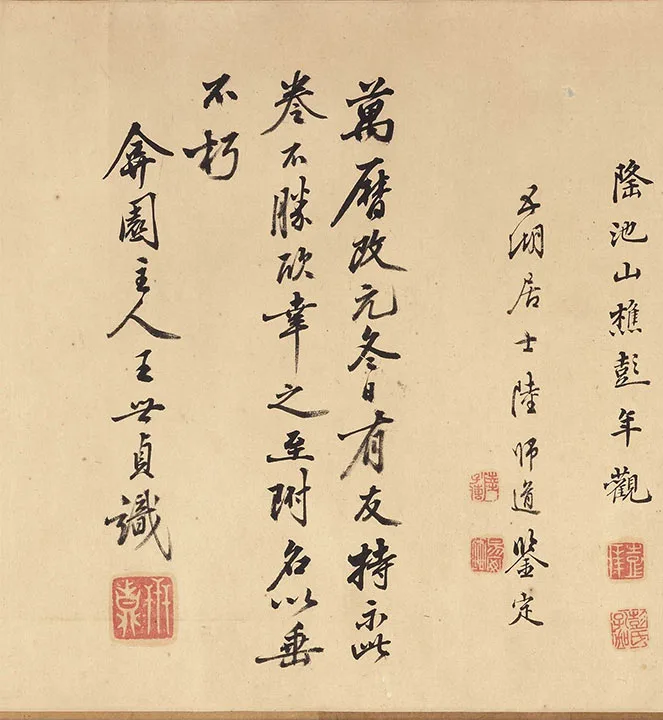 隆池山樵彭年觀
五湖居士陸師道鑒定
萬曆改元冬日有友持示此
卷不勝欣幸之至附名以垂
不朽
弇園主人王世貞識